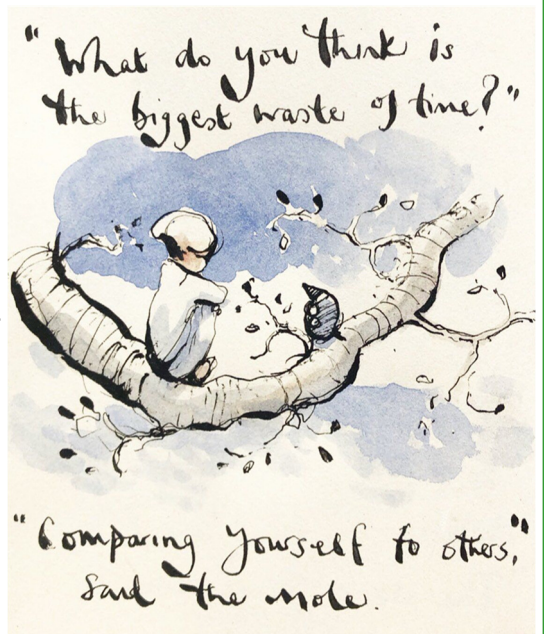 "What do you think is
the biggest waste of time?"
"Comparing yourself to others,"
said the mole.